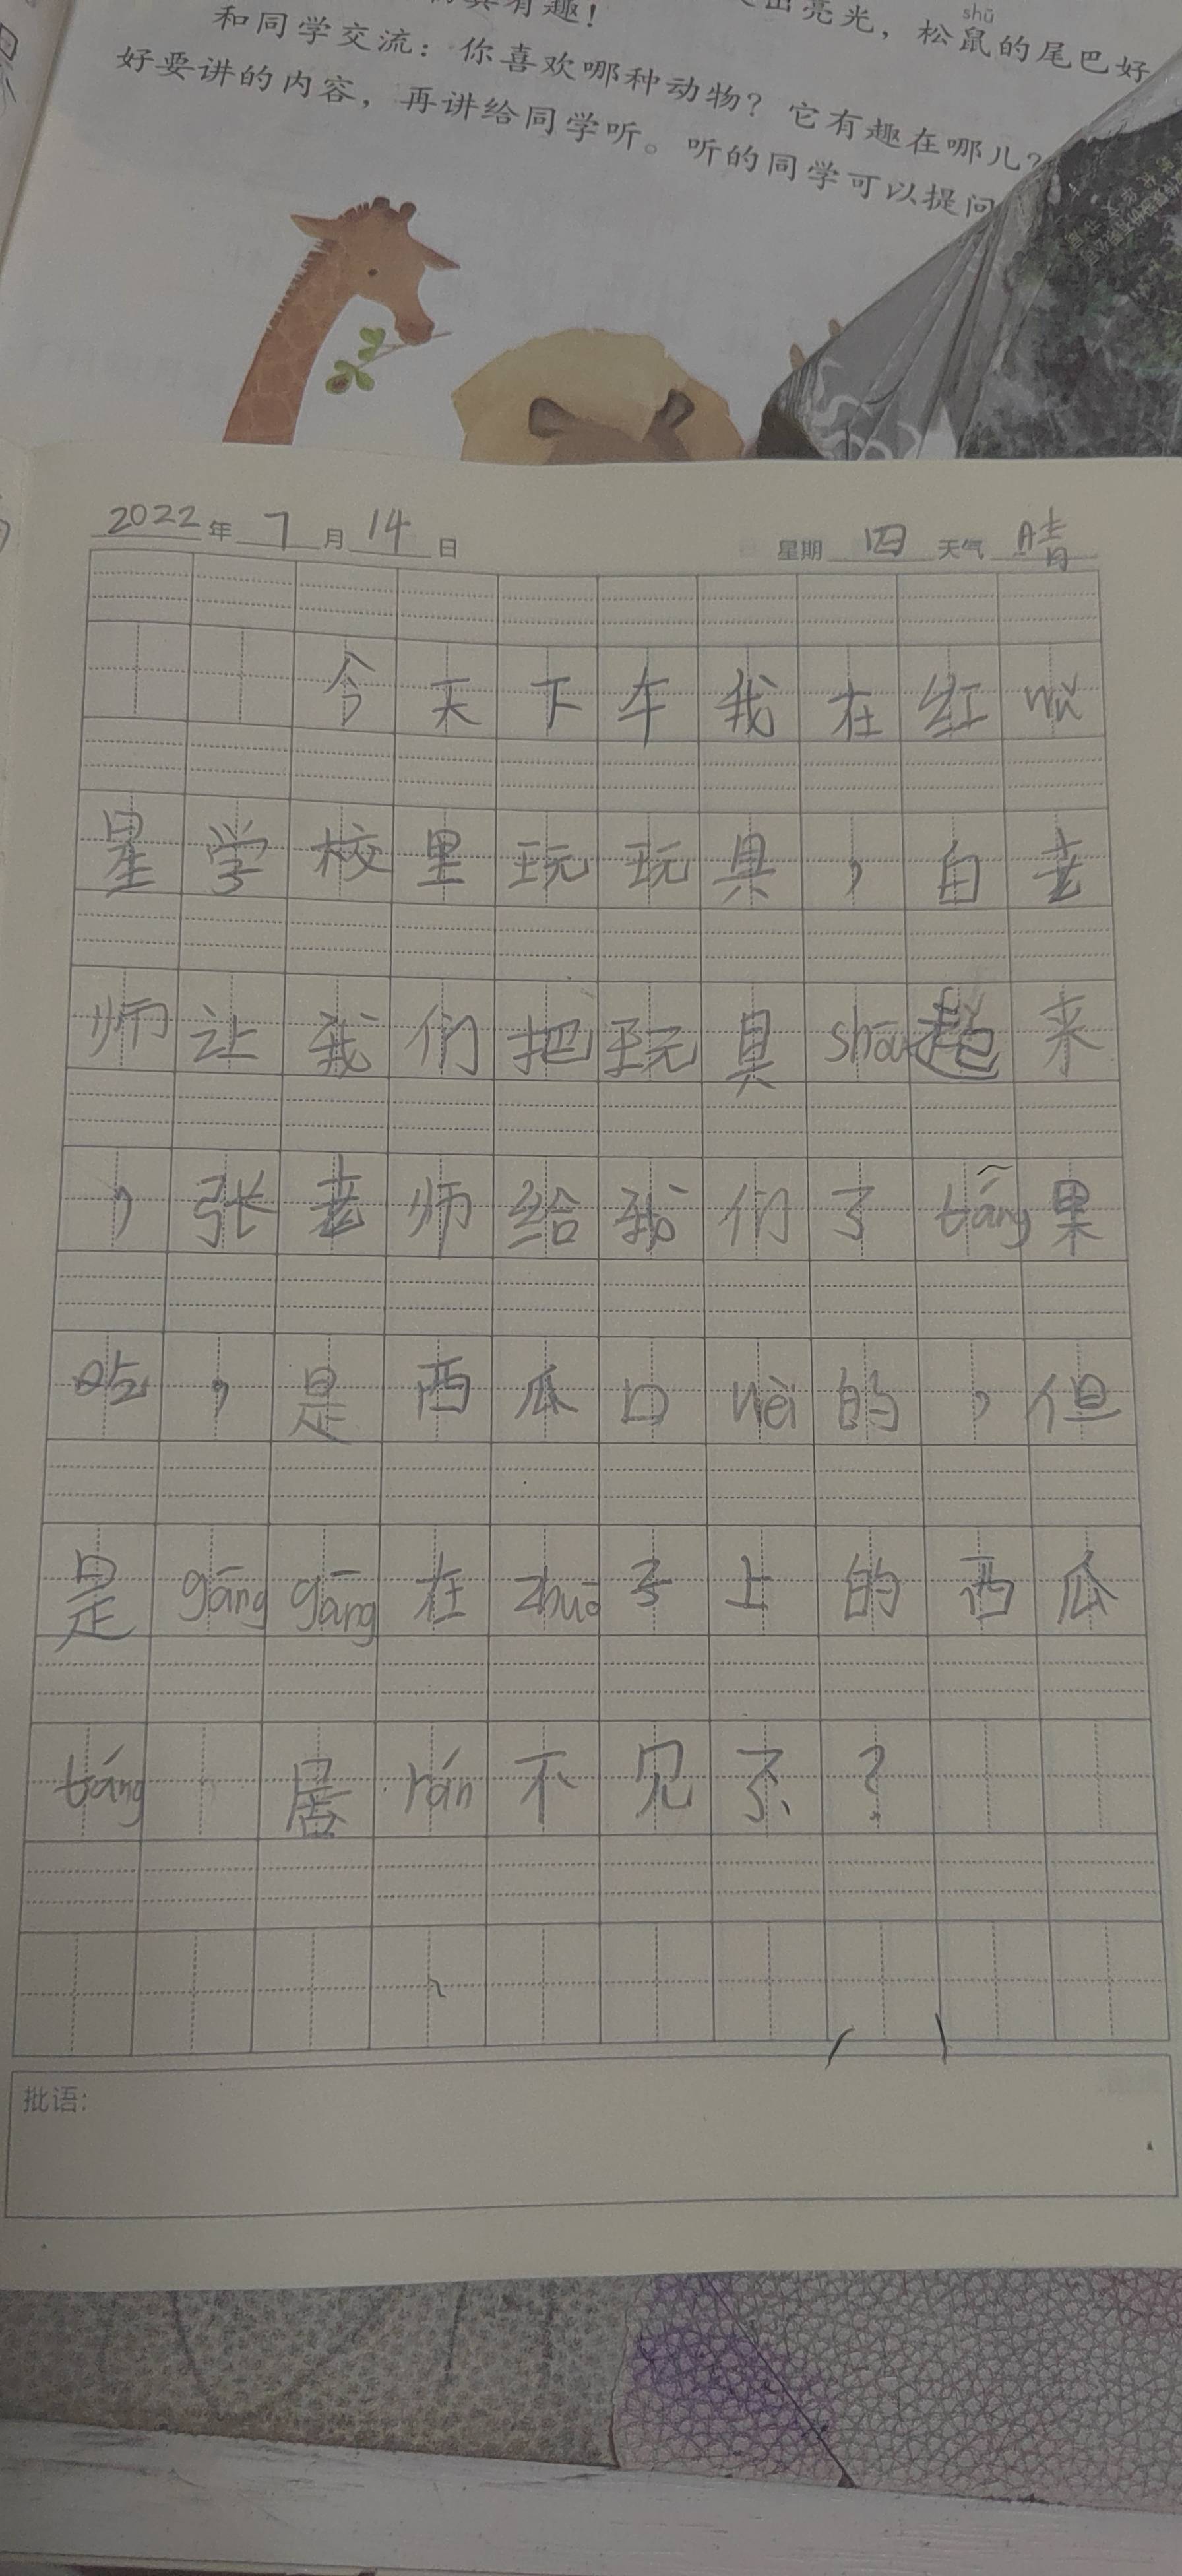 有趣！
出亮光，松鼠的尾巴好
shǔ
和同学交流：你喜欢哪种动物？它有趣在哪儿？
好要讲的内容，再讲给同学听。听的同学可以提问
2022年7月14日 星期四 天气晴
今天下车我在红
星学校里玩玩具，自老
师让我们把玩具shōu起来
，张老师给我们了táng果
吃，是西瓜口wèi的，但
是gāng gāng在zhuō子上的西瓜
táng 居rán不见了？
批语：